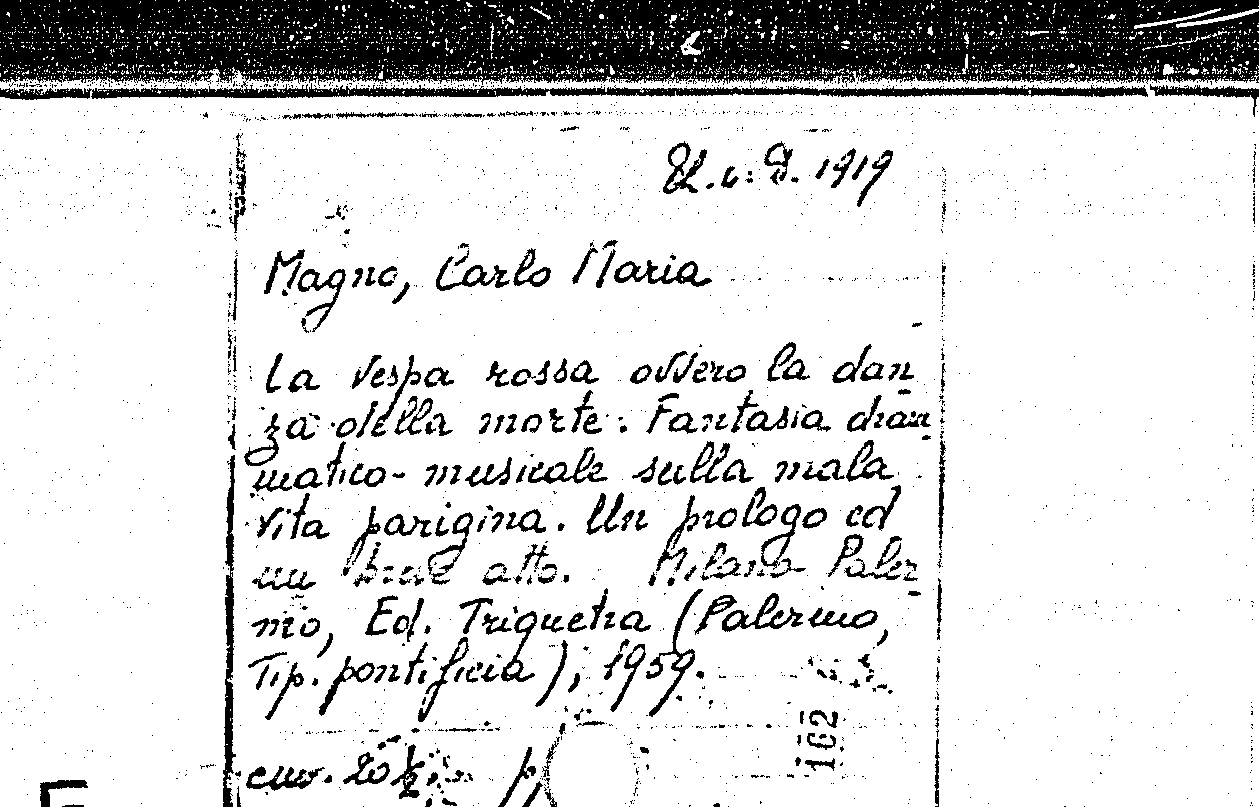 1919
Magno, Carlo Maria
La vespa rossa ovvero la dan-
za della morte. Fantasia dram-
matico-musicale sulla mala
vita parigina. Un prologo ed
un breve atto. Milano Paler-
mo, Ed. Triquetra (Palermo,
Tip. pontificia), 1959.
162
cm. 20½. p.